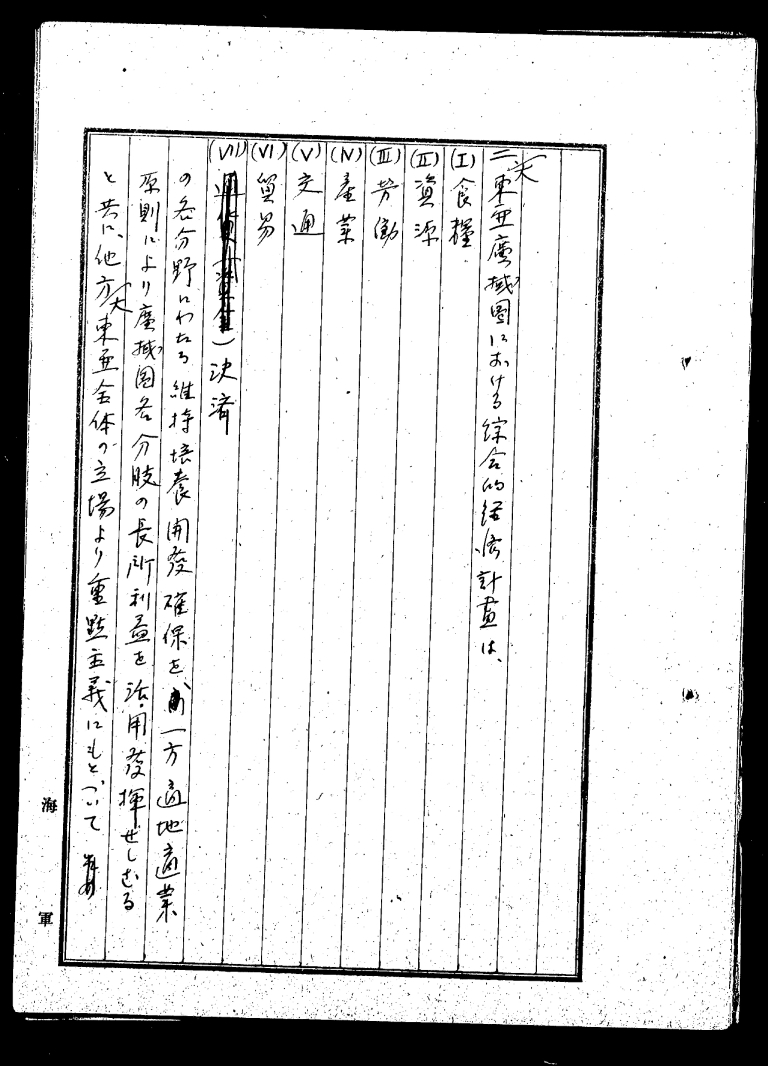 二、大東亜廣域圏における綜合的経済計畫は、
(I) 食糧
(II) 資源
(III) 労働
(IV) 産業
(V) 交通
(VI) 貿易
(VII) 決済
の各分野にわたる維持培養開發確保を一方適地適業
原則により廣域圏各分肢の長所利益を活用發揮せしむる
と共に、他方大東亜全体の立場より重點主義にもとづいて
海軍